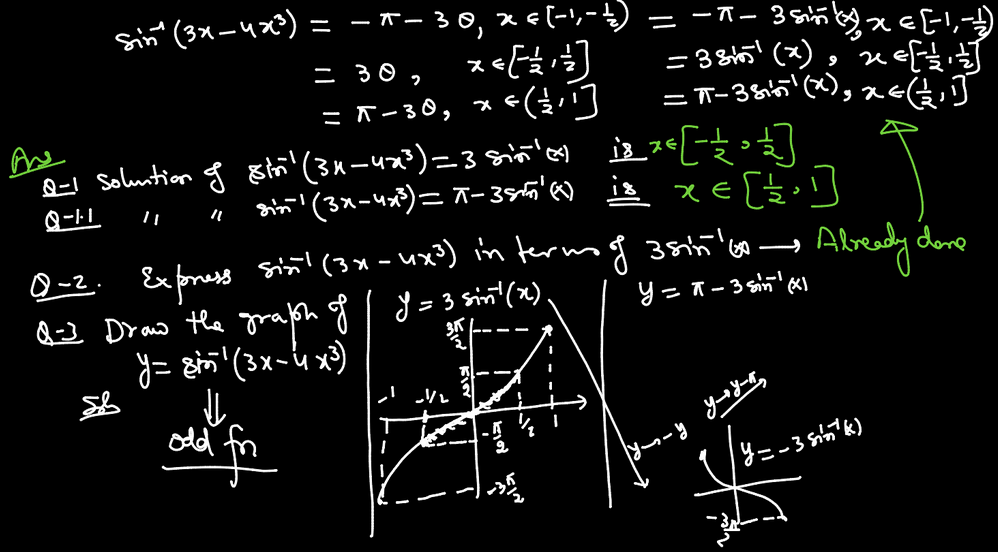 sin⁻¹(3x-4x³) = -π-3θ, x∈[-1,-1/2) = -π-3sin⁻¹(x), x∈[-1,-1/2)
= 3θ, x∈[-1/2,1/2] = 3sin⁻¹(x), x∈[-1/2,1/2]
= π-3θ, x∈(1/2,1] = π-3sin⁻¹(x), x∈(1/2,1]
Ans
Q-1 Solution of sin⁻¹(3x-4x³)=3sin⁻¹(x) is x∈[-1/2,1/2]
Q-1.1 " " sin⁻¹(3x-4x³)=π-3sin⁻¹(x) is x∈[1/2,1]
Q-2. Express sin⁻¹(3x-4x³) in terms of 3sin⁻¹(x) → Already done
Q-3 Draw the graph of
y=sin⁻¹(3x-4x³)
Sol
⇓
odd fn
y=3sin⁻¹(x)
3π/2
π/2
-1 -1/2
1/2
-π/2
-3π/2
y→-y
y=π-3sin⁻¹(x)
y→y-π
y=-3sin⁻¹(x)
-3π/2